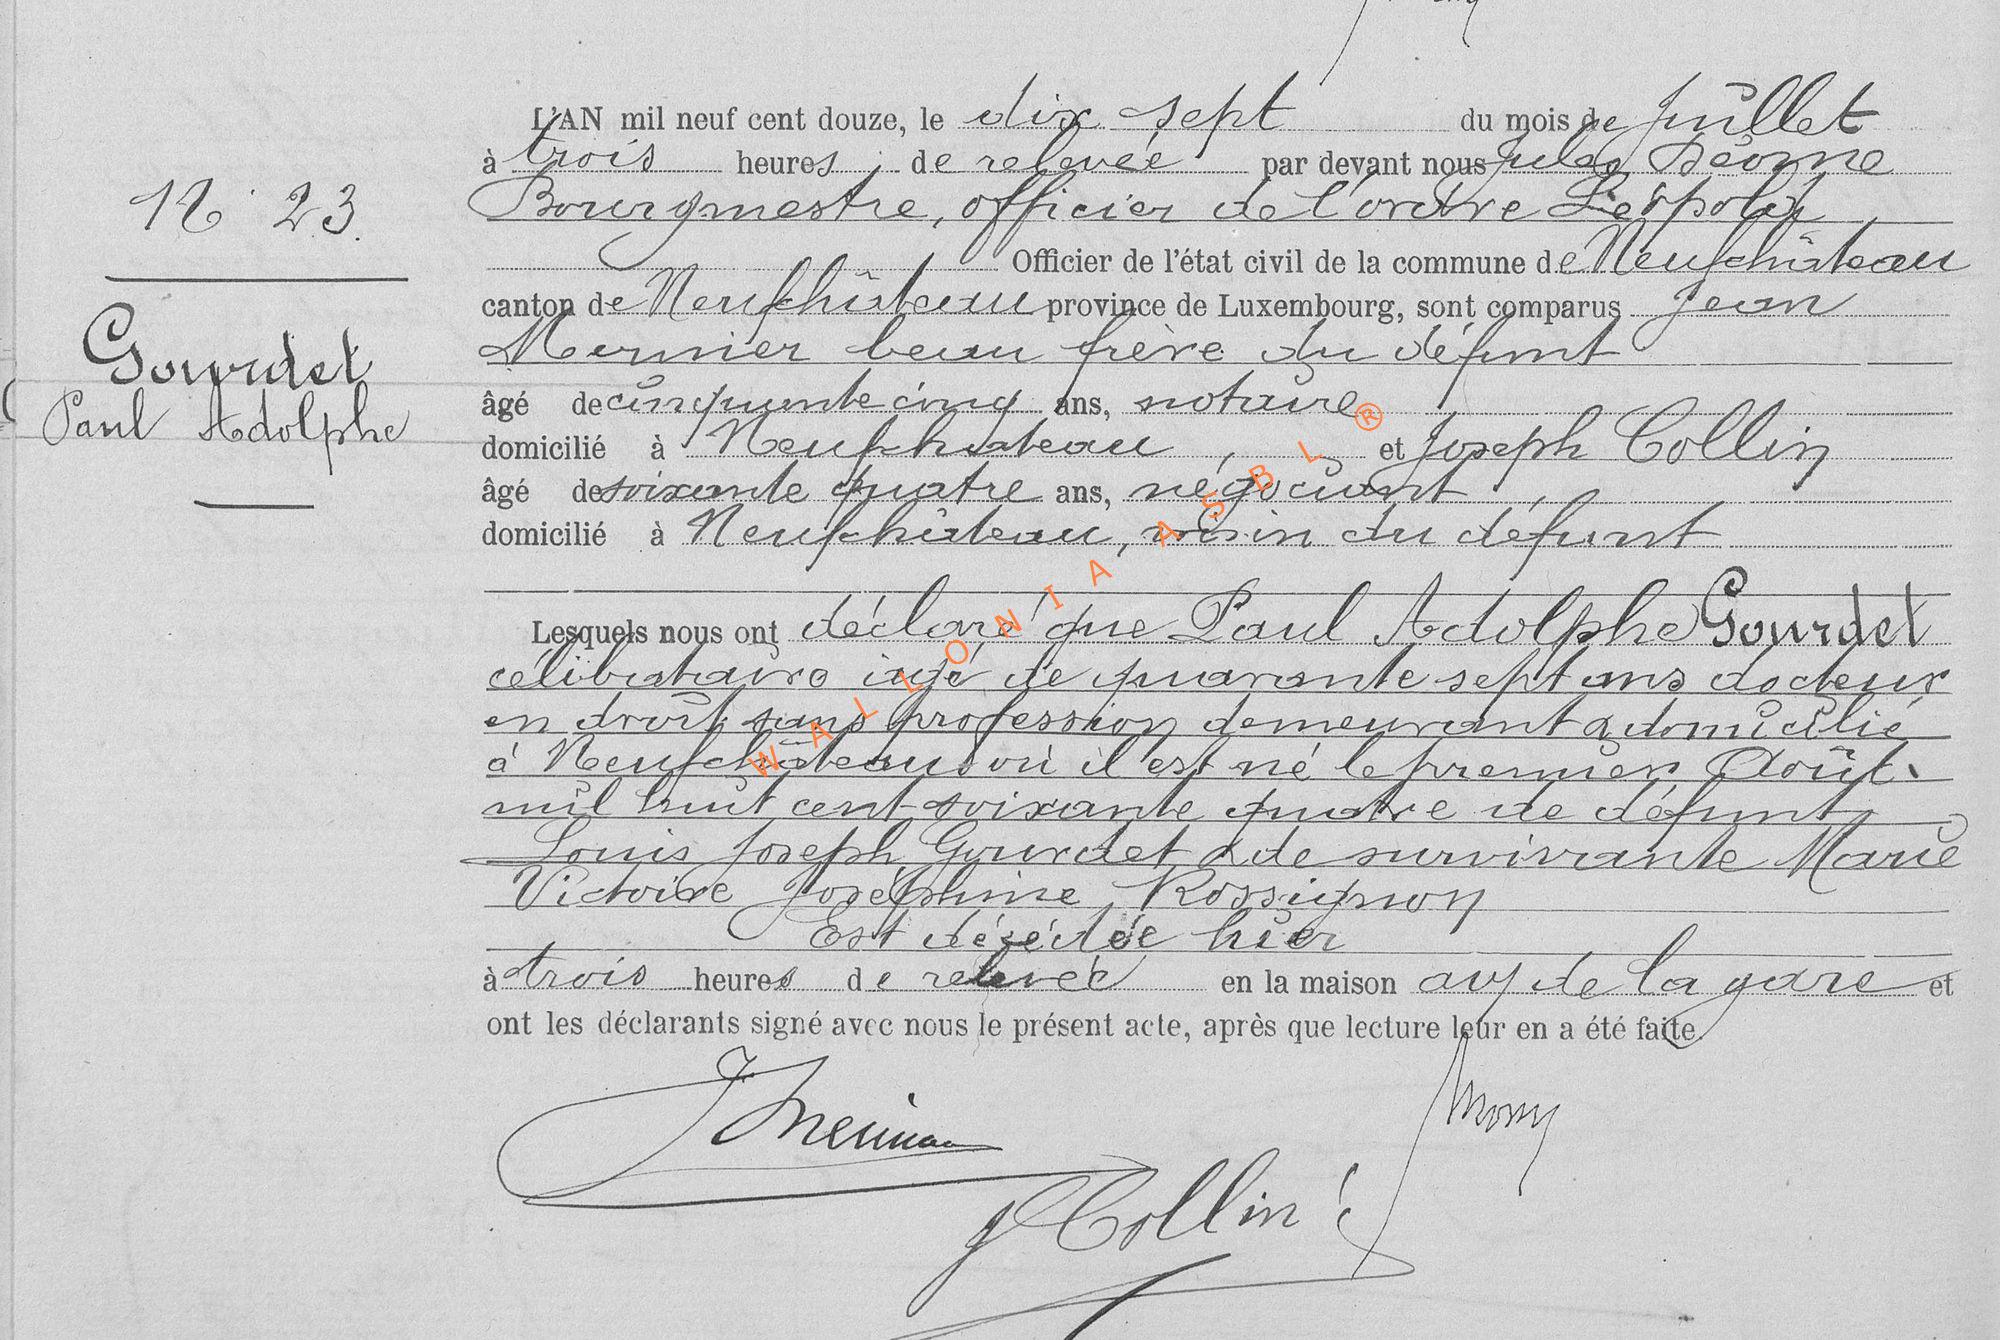 L'AN mil neuf cent douze, le dix sept du mois de Juillet
à trois heures de relevée par devant nous Jules
Bourgmestre, officier de l'ordre Léopold,
Officier de l'état civil de la commune de Neufchâteau
canton de Neufchâteau province de Luxembourg, sont comparus Jean
Mernier beau frère du défunt
âgé de cinquante cinq ans, notaire
domicilié à Neufchâteau, et Joseph Collin
âgé de soixante quatre ans, négociant,
domicilié à Neufchâteau, voisin du défunt
Lesquels nous ont déclaré que Paul Adolphe Gourdet
célibataire âgé de quarante sept ans docteur
en droit, sans profession demeurant & domicilié
à Neufchâteau où il est né le premier Août
mil huit cent soixante quatre de défunt
Louis Joseph Gourdet & de survivante Marie
Victoire Joséphine Rossignon
Est décédée hier
à trois heures de relevée en la maison av. de la gare et
ont les déclarants signé avec nous le présent acte, après que lecture leur en a été faite.
J Collin
N° 23.
Gourdet
Paul Adolphe
WALLONIA ASBL ®